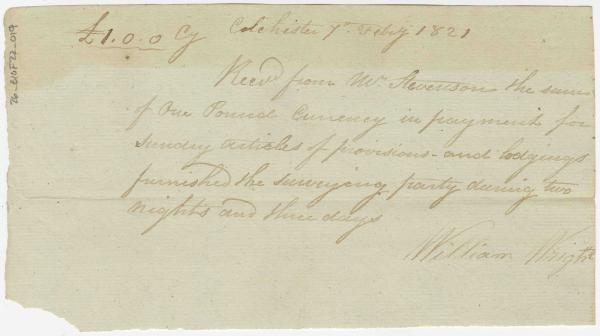 £1.0.0 Cy Colchester 7th Feby 1821
Recvd from Mr Stevenson the sum
of One Pound Currency in payment for
sundry articles of provisions and lodgings
furnished the surveying party during two
nights and three days
William Wright